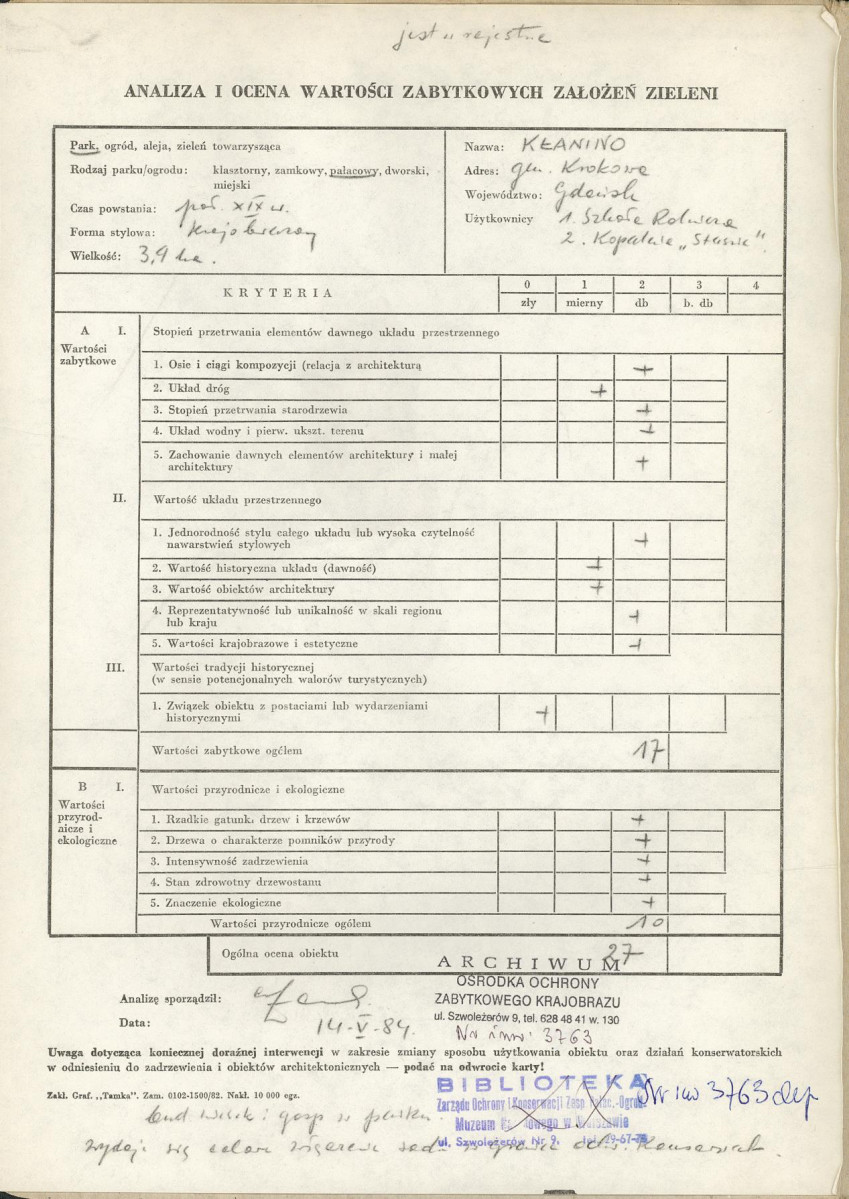 jest w rejestrze
ANALIZA I OCENA WARTOŚCI ZABYTKOWYCH ZAŁOŻEŃ ZIELENI
Park, ogród, aleja, zieleń towarzysząca
Rodzaj parku/ogrodu: klasztorny, zamkowy, pałacowy, dworski,
miejski
Czas powstania: poł. XIX w.
Forma stylowa: krajobrazowy
Wielkość: 3,9 ha.
Nazwa: KŁANINO
Adres: gm. Krokowa
Województwo: Gdańsk
Użytkownicy 1. Szkoła Rolnicza
2. Kopalnia
KRYTERIA 0 1 2 3 4
zły mierny db b. db
A I. Stopień przetrwania elementów dawnego układu przestrzennego
Wartości
zabytkowe
1. Osie i ciągi kompozycji (relacja z architekturą +
2. Układ dróg +
3. Stopień przetrwania starodrzewia +
4. Układ wodny i pierw. ukszt. terenu +
5. Zachowanie dawnych elementów architektury i małej
architektury +
II. Wartość układu przestrzennego
1. Jednorodność stylu całego układu lub wysoka czytelność
nawarstwień stylowych +
2. Wartość historyczna układu (dawność) +
3. Wartość obiektów architektury +
4. Reprezentatywność lub unikalność w skali regionu
lub kraju +
5. Wartości krajobrazowe i estetyczne +
III. Wartości tradycji historycznej
(w sensie potencjonalnych walorów turystycznych)
1. Związek obiektu z postaciami lub wydarzeniami
historycznymi +
Wartości zabytkowe ogółem 17
B I. Wartości przyrodnicze i ekologiczne
Wartości
przyrod-
nicze i
ekologiczne
1. Rzadkie gatunki drzew i krzewów +
2. Drzewa o charakterze pomników przyrody +
3. Intensywność zadrzewienia +
4. Stan zdrowotny drzewostanu +
5. Znaczenie ekologiczne +
Wartości przyrodnicze ogółem 10
Ogólna ocena obiektu 27
ARCHIWUM
OŚRODKA OCHRONY
ZABYTKOWEGO KRAJOBRAZU
ul. Szwoleżerów 9, tel. 628 48 41 w. 130
Nr inw. 3763
Analizę sporządził:
Data: 14-V-84.
Uwaga dotycząca koniecznej doraźnej interwencji w zakresie zmiany sposobu użytkowania obiektu oraz działań konserwatorskich
w odniesieniu do zadrzewienia i obiektów architektonicznych — podać na odwrocie karty!
Zakl. Graf. „Tamka". Zam. 0102-1500/82. Nakł. 10 000 egz.
BIBLIOTEKA
Zarządu Ochrony i Konserwacji Zesp. Pałac.-Ogrod.
Muzeum w Warszawie
ul. Szwoleżerów Nr 9, tel. 29-67-
Nr inw 3763
i gosp w parku
wydaje się